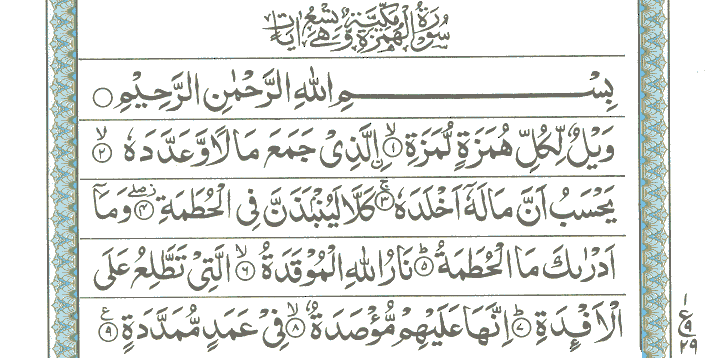 سُوْرَةُ الْهُمَزَةِ مَكِّيَّةٌ وَّهِيَ تِسْعُ اٰيَاتٍ
بِسْمِ اللهِ الرَّحْمٰنِ الرَّحِيْمِ ○
وَيْلٌ لِّكُلِّ هُمَزَةٍ لُّمَزَةِ ۙ﴿۱﴾ اۨلَّذِىْ جَمَعَ مَالًا وَّعَدَّدَهٗ ۙ﴿۲﴾
يَحْسَبُ اَنَّ مَالَهٗٓ اَخْلَدَهٗ ۚ﴿۳﴾ كَلَّا لَيُنْۢبَذَنَّ فِى الْحُطَمَةِ ۖ﴿۴﴾ وَمَاۤ
اَدْرٰىكَ مَا الْحُطَمَةُ ؕ﴿۵﴾ نَارُ اللهِ الْمُوْقَدَةُ ۙ﴿۶﴾ الَّتِىْ تَطَّلِعُ عَلَى
الْاَفْـِٕدَةِ ؕ﴿۷﴾ اِنَّهَا عَلَيْهِمْ مُّؤْصَدَةٌ ۙ﴿۸﴾ فِىْ عَمَدٍ مُّمَدَّدَةٍ ﴿۹﴾ ع
۱
ع ۹
۲۹